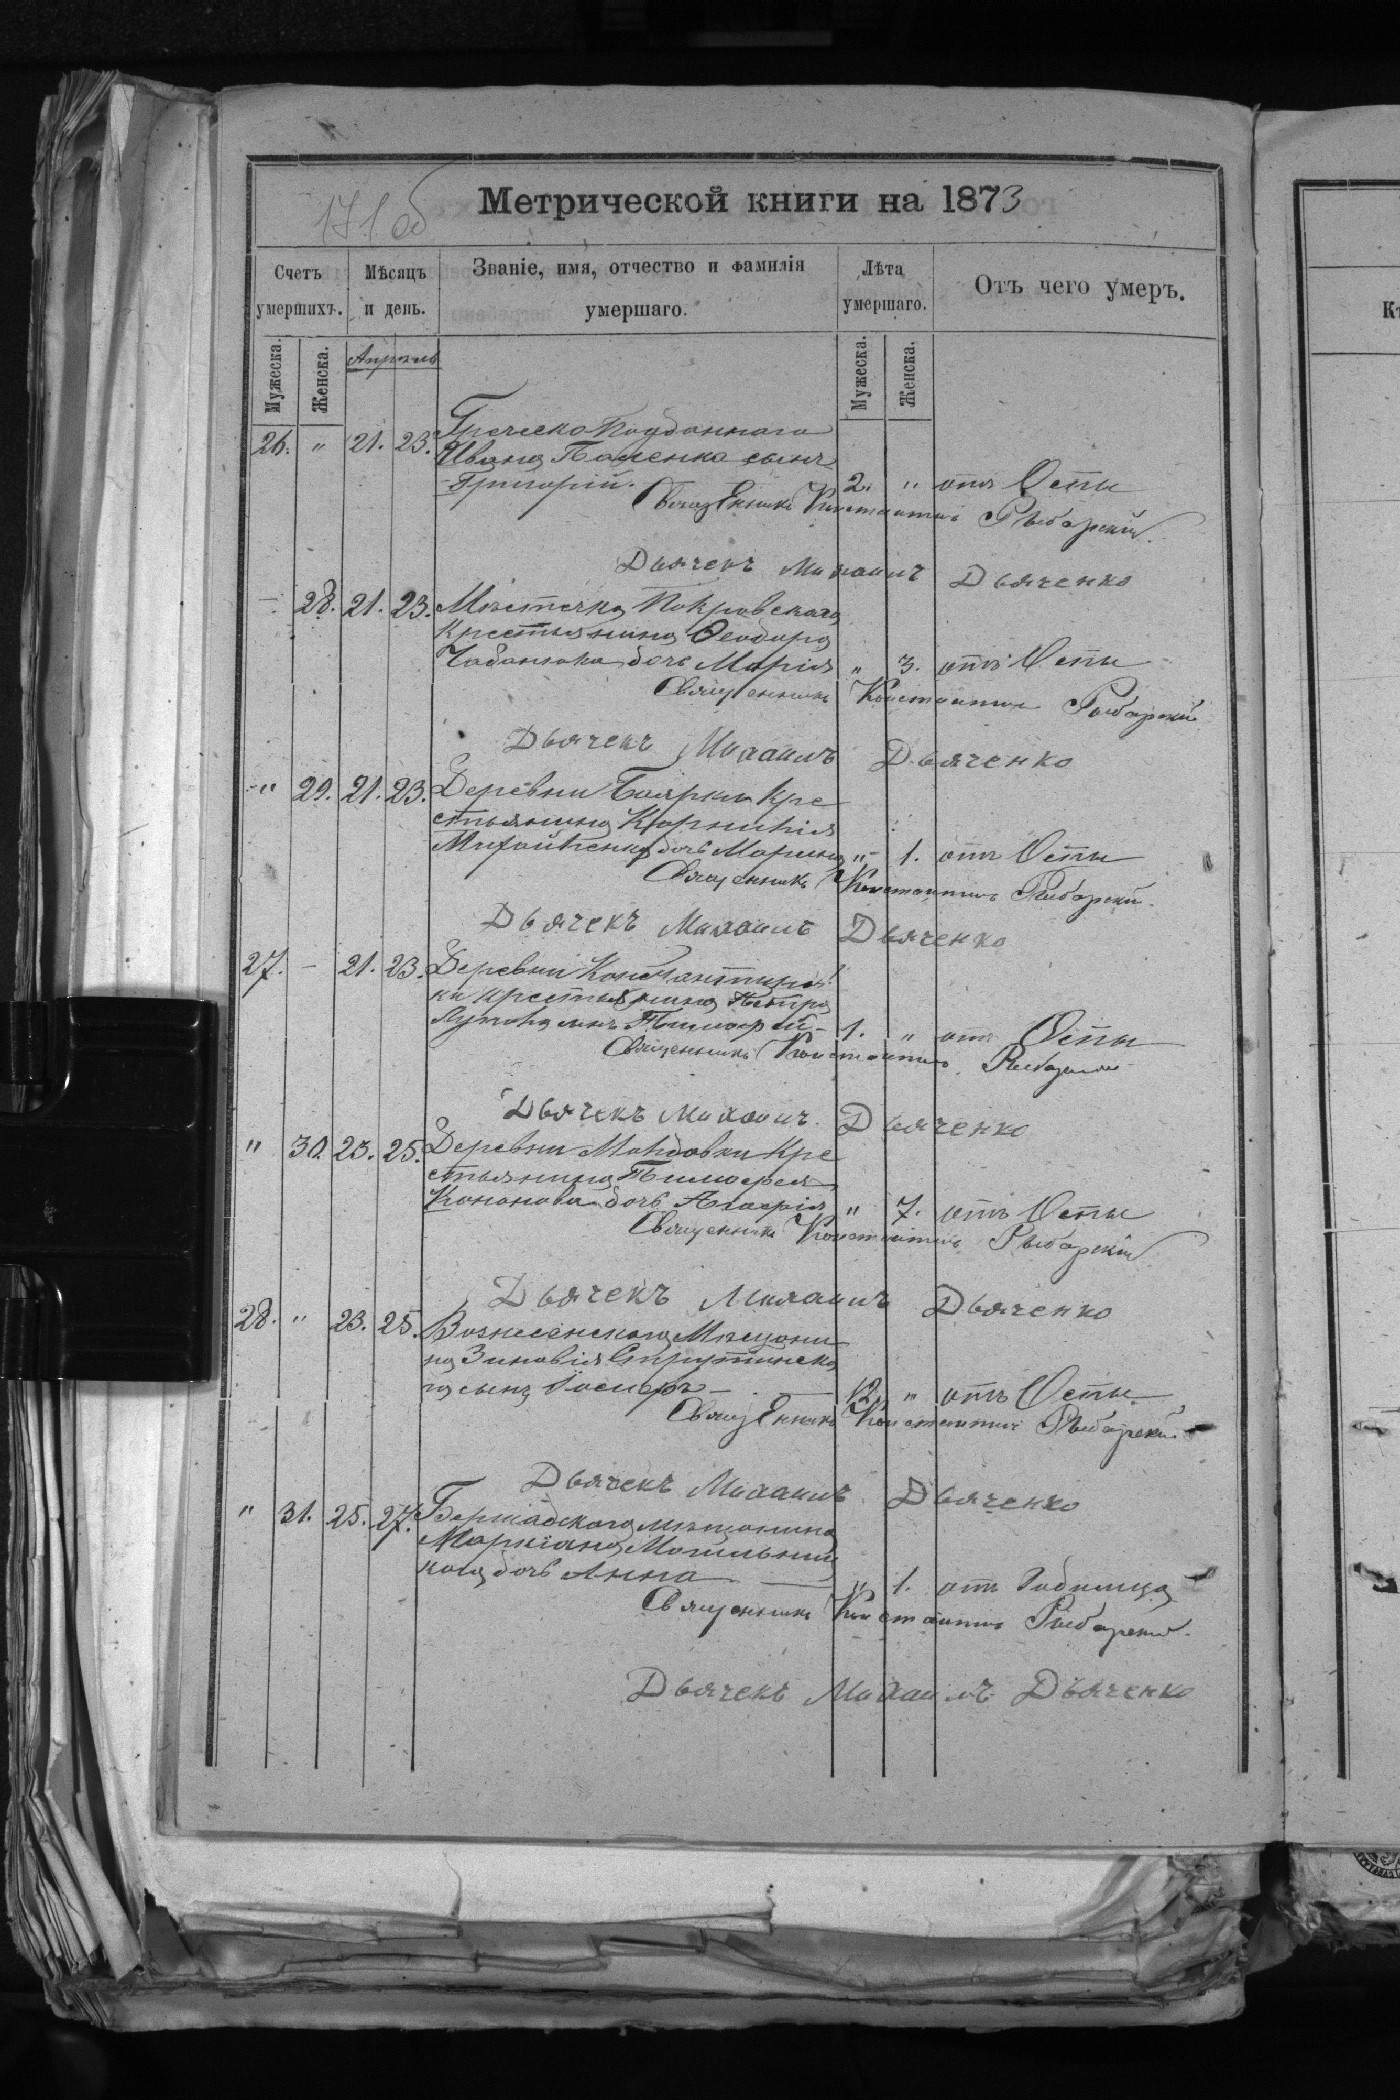 171 об
Метрической книги на 1873
Счетъ умершихъ.
Мѣсяцъ и день.
Званіе, имя, отчество и фамилія умершаго.
Лѣта умершаго.
Отъ чего умеръ.
Мужеска.
Женска.
Апрѣль
Мужеска.
Женска.
26. " 21. 23. Греческо Подданнаго
Ивана сынъ
Григорій. 2. " отъ Оспы
Священникъ Константинъ Рыбарскій
Дьячекъ Михаилъ Дьяченко
" 28. 21. 23. Мѣстечка Покровскаго
Крестьянина Ѳеодора
дочь Марія " 3. отъ Оспы
Священникъ Константинъ Рыбарскій
Дьячекъ Михаилъ Дьяченко
" 29. 21. 23. Деревни Боярки Кре
стьянина Корнилія
дочь Марина " 1. отъ Оспы
Священникъ Константинъ Рыбарскій
Дьячекъ Михаилъ Дьяченко
27. - 21. 23. Деревни Константинов
ки крестьянина Петра
сынъ Тимофей - 1. " отъ Оспы
Священникъ Константинъ Рыбарскій
Дьячекъ Михаилъ Дьяченко
" 30. 23. 25. Деревни Кре
стьянина Тимофея
Кононова дочь Агафія " 7. отъ Оспы
Священникъ Константинъ Рыбарскій
Дьячекъ Михаилъ Дьяченко
28. " 23. 25. Вознесенскаго Мѣщани
на Зиновія
го сынъ Іосифъ 12 " отъ Оспы
Священникъ Константинъ Рыбарскій
Дьячекъ Михаилъ Дьяченко
" 31. 25. 27. Бершадскаго мѣщанина
Маркіана Могильниц
каго дочь Анна " 1. отъ
Священникъ Константинъ Рыбарскій
Дьячекъ Михаилъ Дьяченко